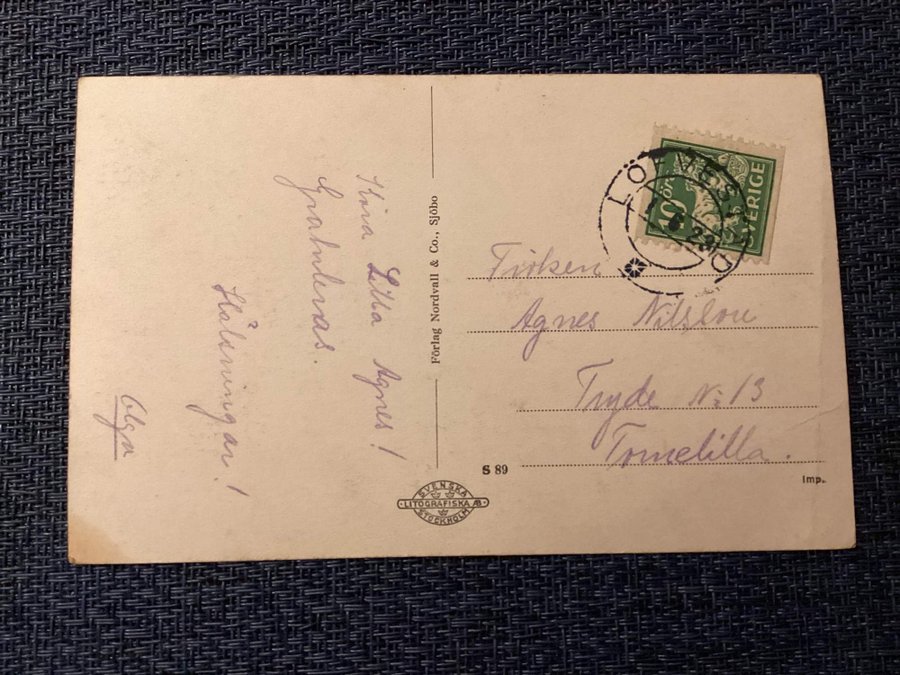 Kära Lilla Agnes!
Gratuleras.
Hälsningar!
Olga
Förlag Nordvall & Co., Sjöbo
10 ÖRE
SVERIGE
LÖVESTAD
29
Fröken
Agnes Nilsson
Tryde No 13
Tomelilla.
S 89
Imp.
SVENSKA
LITOGRAFISKA AB
STOCKHOLM